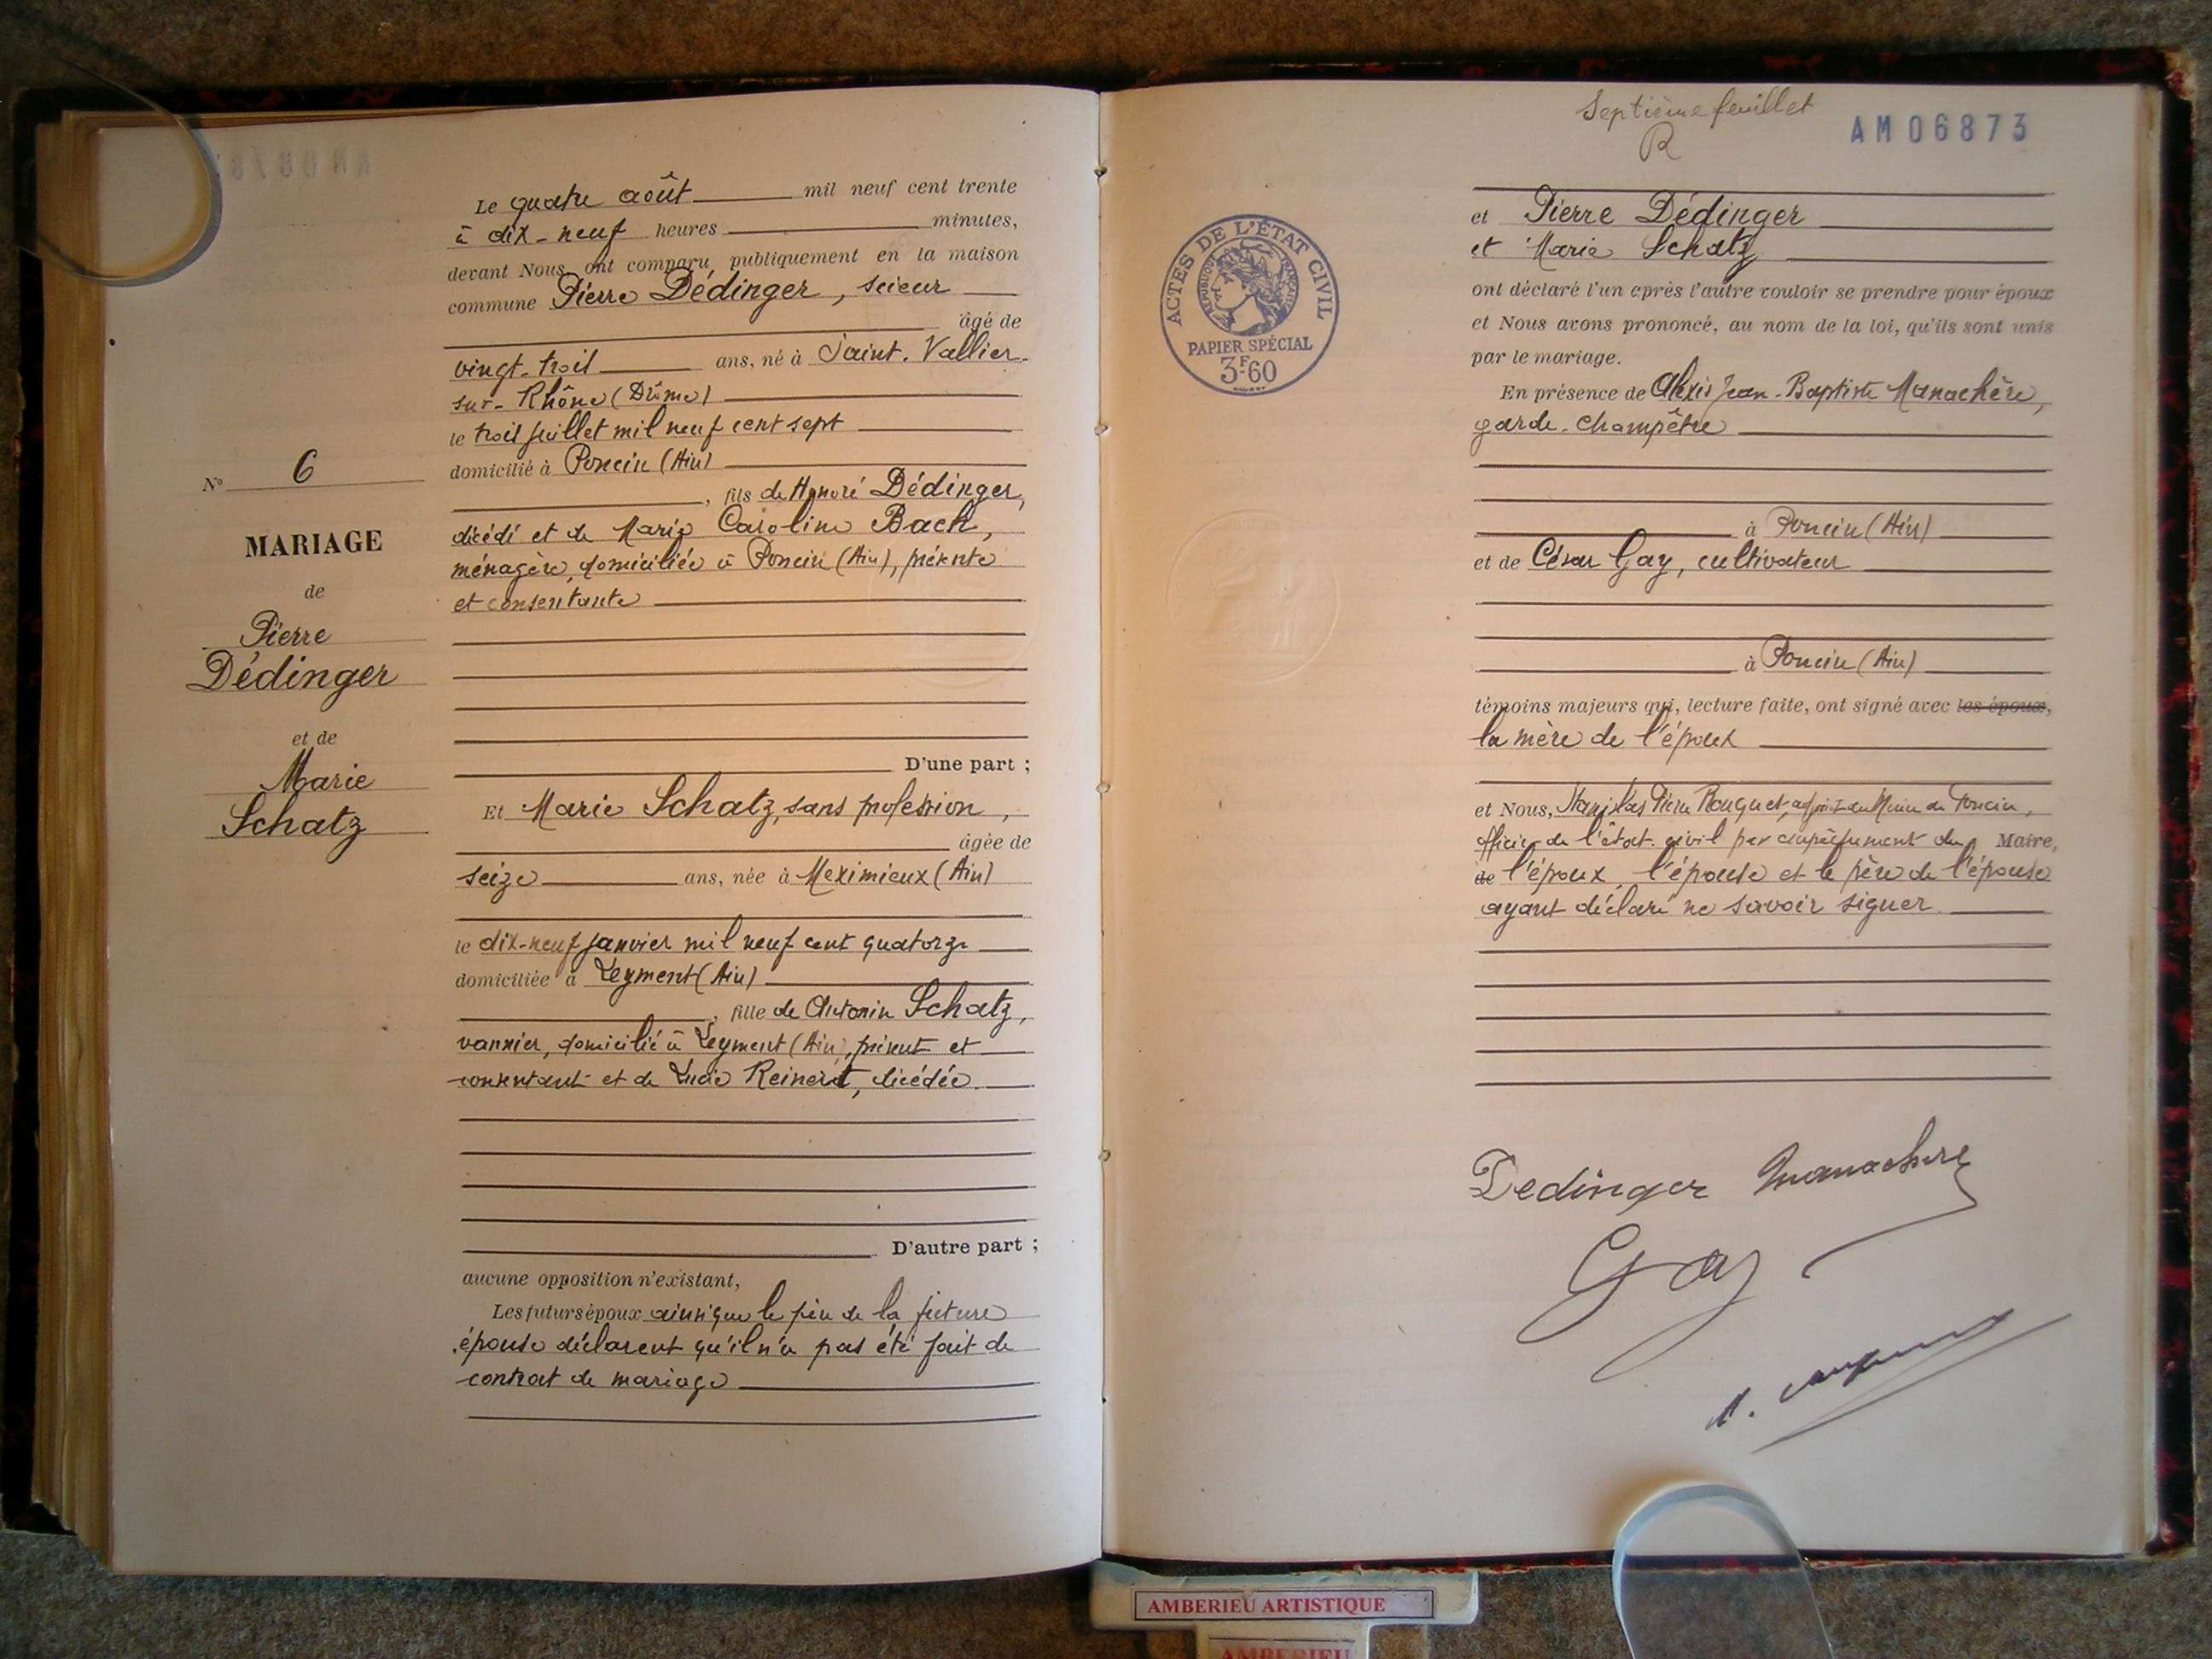 Le quatre août mil neuf cent trente
à dix-neuf heures minutes,
devant Nous ont comparu publiquement en la maison
commune Pierre Dédinger, scieur
âgé de
vingt-trois ans, né à Saint-Vallier-
sur-Rhône (Drôme)
le trois juillet mil neuf cent sept
domicilié à Poncin (Ain)
, fils de Honoré Dédinger,
décédé et de Marie Caroline Bach,
ménagère, domiciliée à Poncin (Ain), présente
et consentante
D'une part ;
N° 6
MARIAGE
de
Pierre
Dédinger
et de
Marie
Schatz
Et Marie Schatz, sans profession,
âgée de
seize ans, née à Meximieux (Ain)
le dix-neuf janvier mil neuf cent quatorze
domiciliée à Leyment (Ain)
, fille de Antonin Schatz,
vannier, domicilié à Leyment (Ain), présent et
consentant et de Lucie Reinerdt, décédée
D'autre part ;
aucune opposition n'existant,
Les futurs époux ainsi que le père de la future
épouse déclarent qu'il n'a pas été fait de
contrat de mariage
Septième feuillet
R
AM06873
ACTES DE L'ÉTAT CIVIL
RÉPUBLIQUE FRANÇAISE
PAPIER SPÉCIAL
3F60
et Pierre Dédinger
et Marie Schatz
ont déclaré l'un après l'autre vouloir se prendre pour époux
et Nous avons prononcé, au nom de la loi, qu'ils sont unis
par le mariage.
En présence de Alexis Jean-Baptiste Manachère,
garde-champêtre
à Poncin (Ain)
et de César Gay, cultivateur
à Poncin (Ain)
témoins majeurs qui, lecture faite, ont signé avec les époux,
la mère de l'époux
et Nous, Stanislas Pierre Rouquet, adjoint au Maire de Poncin,
officier de l'état-civil par empêchement du Maire,
de l'époux, l'épouse et le père de l'épouse
ayant déclaré ne savoir signer.
Dedinger Manachère
Gay
AMBERIEU ARTISTIQUE
AMBERIEU